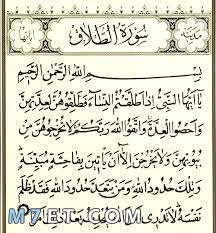 سُورَةُ الطَّلَاقِ
بِسْمِ اللَّهِ الرَّحْمَٰنِ الرَّحِيمِ
يَا أَيُّهَا النَّبِيُّ إِذَا طَلَّقْتُمُ النِّسَاءَ فَطَلِّقُوهُنَّ لِعِدَّتِهِنَّ
وَأَحْصُوا الْعِدَّةَ وَاتَّقُوا اللَّهَ رَبَّكُمْ لَا تُخْرِجُوهُنَّ مِنْ
بُيُوتِهِنَّ وَلَا يَخْرُجْنَ إِلَّا أَنْ يَأْتِينَ بِفَاحِشَةٍ مُبَيِّنَةٍ
وَتِلْكَ حُدُودُ اللَّهِ وَمَنْ يَتَعَدَّ حُدُودَ اللَّهِ فَقَدْ ظَلَمَ
نَفْسَهُ لَا تَدْرِي
M7ET.COM